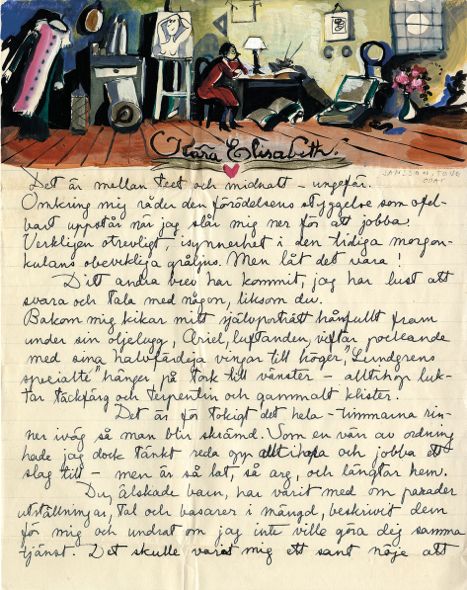 Kära Elisabeth.
JANSSON, TOVE
ODAT
Det är mellan tect och midnatt – ungefär.
Omkring mig råder den förödelsens styggelse som ofel-
bart uppstår när jag slår mig ner för att jobba.
Verkligen otrevligt – isynnerhet i den tidiga morgon-
kulans obevekliga gråljus. Men låt det vara!
Ditt andra brev har kommit, jag har lust att
svara och tala med någon, liksom du.
Bakom mig kikar mitt självporträtt hånfullt fram
under sin oljelugg, Ariel, luftanden, viftar pockande
med sina halvfärdiga vingar till höger, "Lundgrens
specialté" hänger på tork till vänster – alltihop luk-
tar täckfärg och terpentin och gammalt klister.
Det är för tokigt det hela – timmarna rin-
ner iväg så man blir skrämd. Som en vän av ordning
hade jag dock tänkt reda opp alltihopa och jobba ett
slag till – men är så lat, så arg, och längtar hem.
Du, älskade barn, har varit med om parader
utställningar, tal och basarer i mängd, beskrivit dem
för mig och undrat om jag inte ville göra dig samma
tjänst. Det skulle varit mig ett sant nöje att